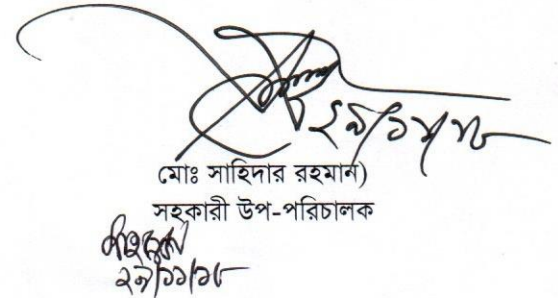 ২৯/১১/১৮
মোঃ সাহিদার রহমান)
সহকারী উপ-পরিচালক
২৯/১১/১৮